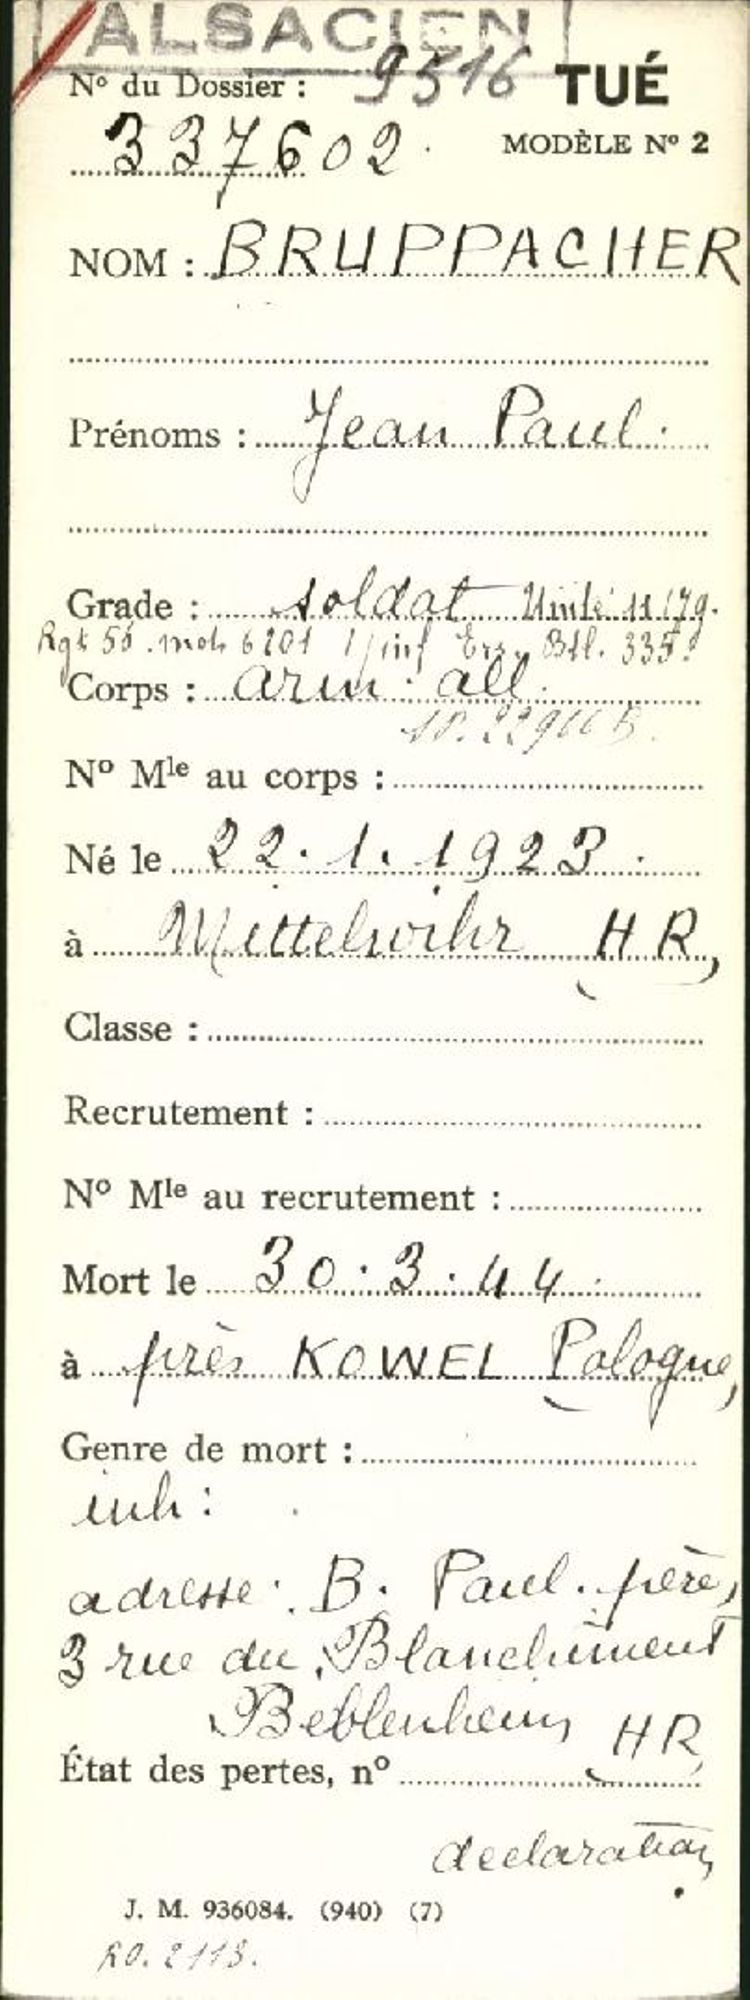 ALSACIEN
N° du Dossier : 9516 TUÉ
337602. MODÈLE N° 2
NOM : BRUPPACHER
Prénoms : Jean Paul.
Grade : soldat Unité 11179.
Rgt 56. mot 6201 1/inf Ers. Btl. 335.
Corps : arm. all.
N° Mle au corps :
Né le 22.1.1923.
à Mittelwihr HR,
Classe :
Recrutement :
N° Mle au recrutement :
Mort le 30.3.44.
à près KOWEL Pologne,
Genre de mort :
inh :
adresse : B. Paul. père,
3 rue du Blanchiment
Beblenheim HR,
État des pertes, n°
declaration
J. M. 936084. (940) (7)
RO. 2113.